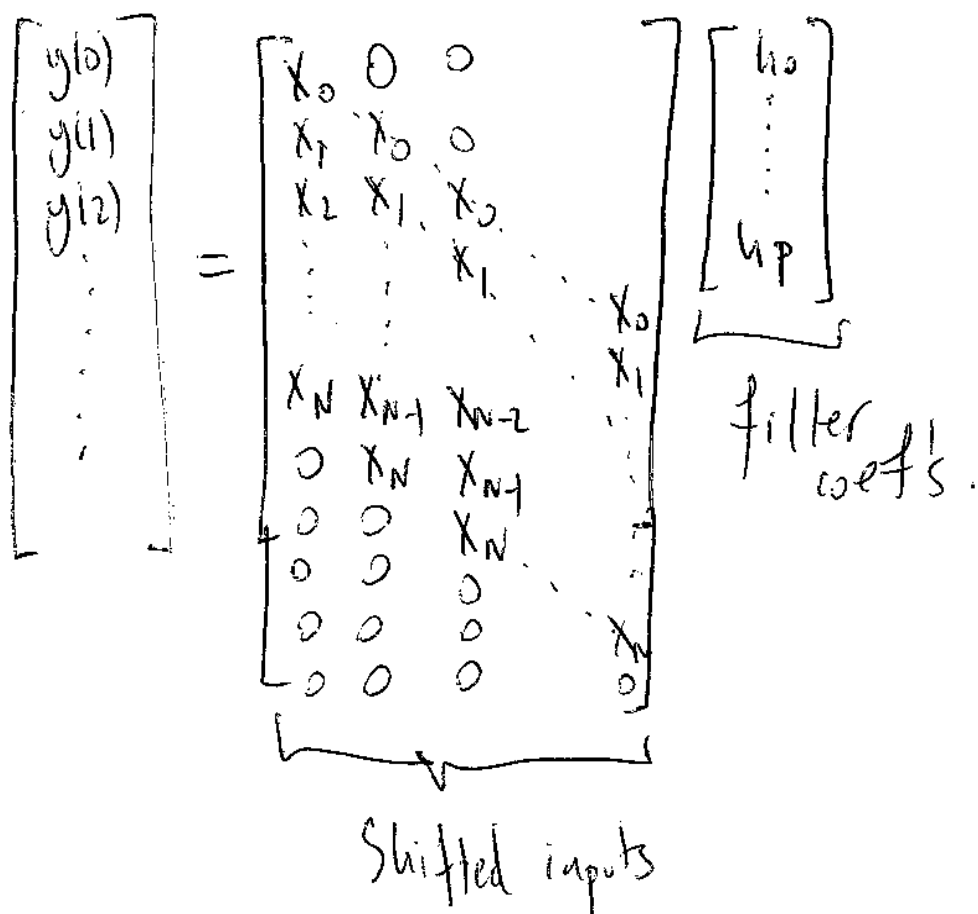 [ y(0) y(1) y(2) ⋮ ] = [
x₀ 0 0
x₁ x₀ 0
x₂ x₁ x₀
⋮ ⋮ x₁ ⋱ x₀
⋮ ⋮ ⋱ x₁
x_N x_{N-1} x_{N-2} ⋮
0 x_N x_{N-1} ⋮
0 0 x_N ⋮
0 0 0 ⋱
0 0 0 x_N
0 0 0 0
] [ h₀ ⋮ h_p ]
filter
coef's.
Shifted inputs